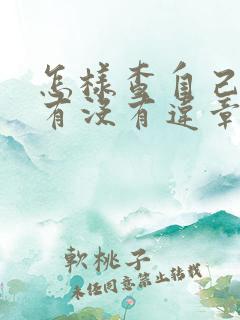 怎樣查自己
有沒有違章
軟桃子
未任同意禁止转载